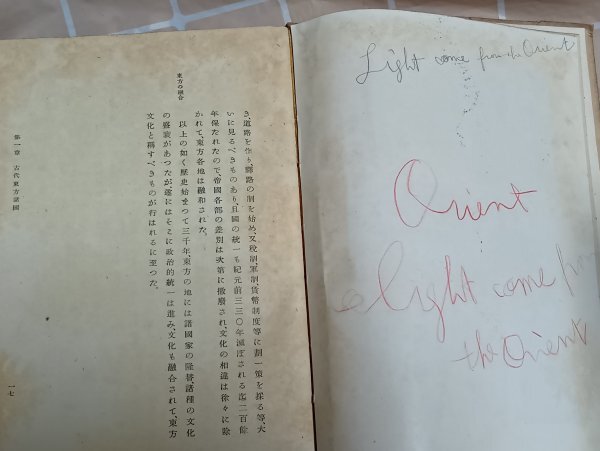 東方の融合
き、道路を作り、驛路の制を始め、又稅制、軍制、貨幣制度等に劃一策を採る等、大
いに見るべきものあり、且國の統一も紀元前三三〇年滅ぼされる迄二百餘
年保たれたので、帝國各部の差別は次第に撤廢され、文化の相違は徐々に除
かれて、東方各地は融和された。
以上の如く歷史始まつて三千年、東方の地には諸國家の隆替、諸種の文化
の盛衰があつたが、遂にはそこに政治的統一は進み、文化も融合されて、東方
文化と稱すべきものが行はれるに至つた。
第一章 古代東方諸國
一七
Light come from the Orient
Orient
light come from
the Orient